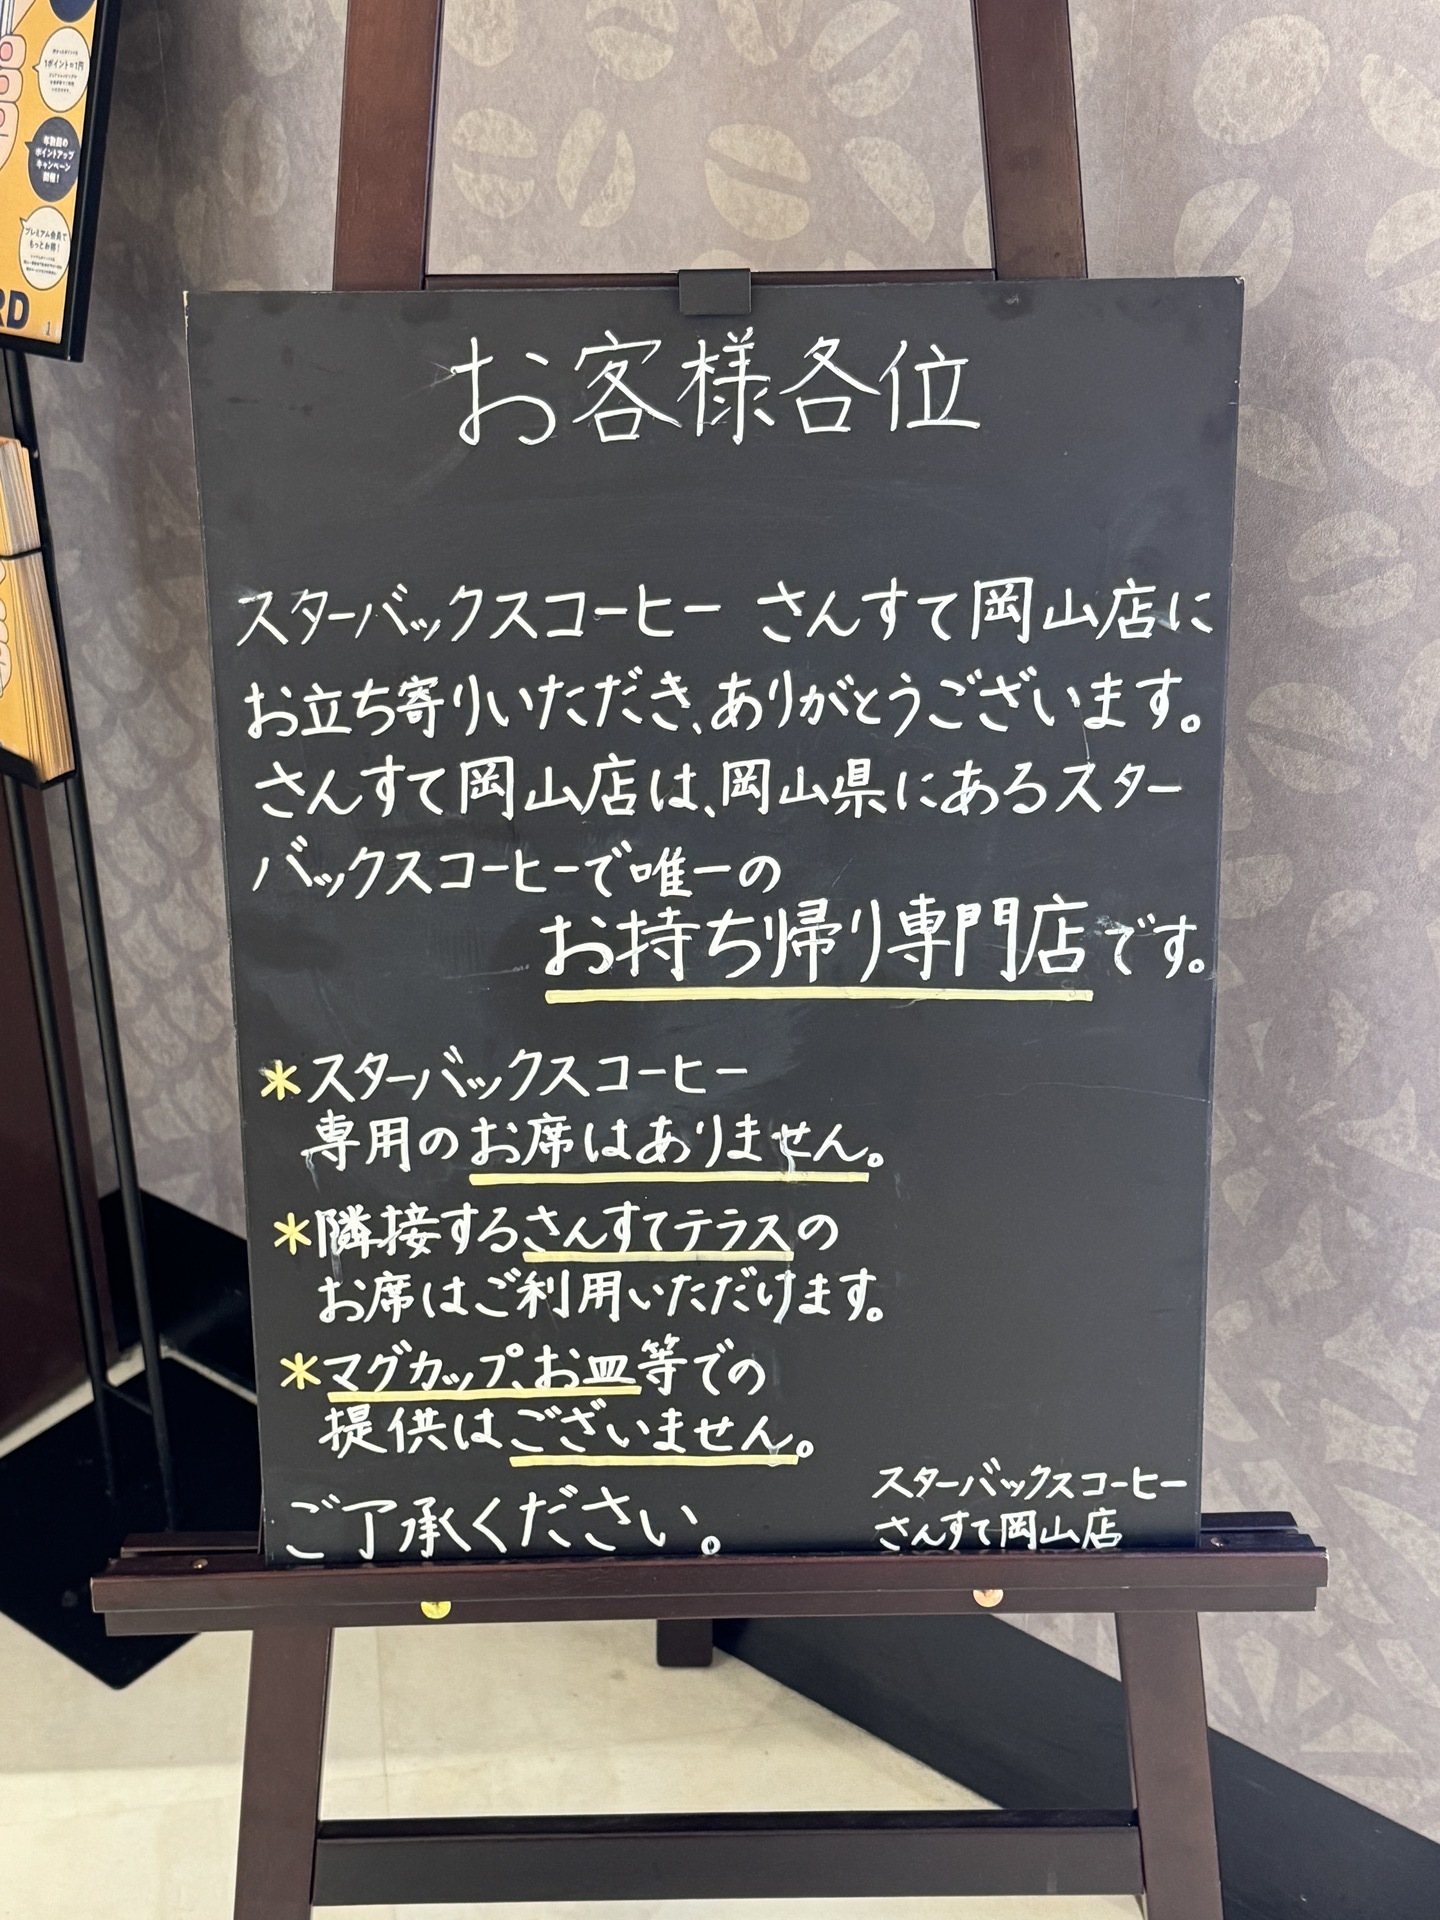 1ポイント=1円
年数回の
ポイントアップ
キャンペーン
開催！
プレミアム会員で
もっとお得！
RD
お客様各位
スターバックスコーヒー さんすて岡山店に
お立ち寄りいただき、ありがとうございます。
さんすて岡山店は、岡山県にあるスター
バックスコーヒーで唯一の
お持ち帰り専門店です。
*スターバックスコーヒー
専用のお席はありません。
*隣接するさんすてテラスの
お席はご利用いただけます。
*マグカップ、お皿等での
提供はございません。
ご了承ください。
スターバックスコーヒー
さんすて岡山店